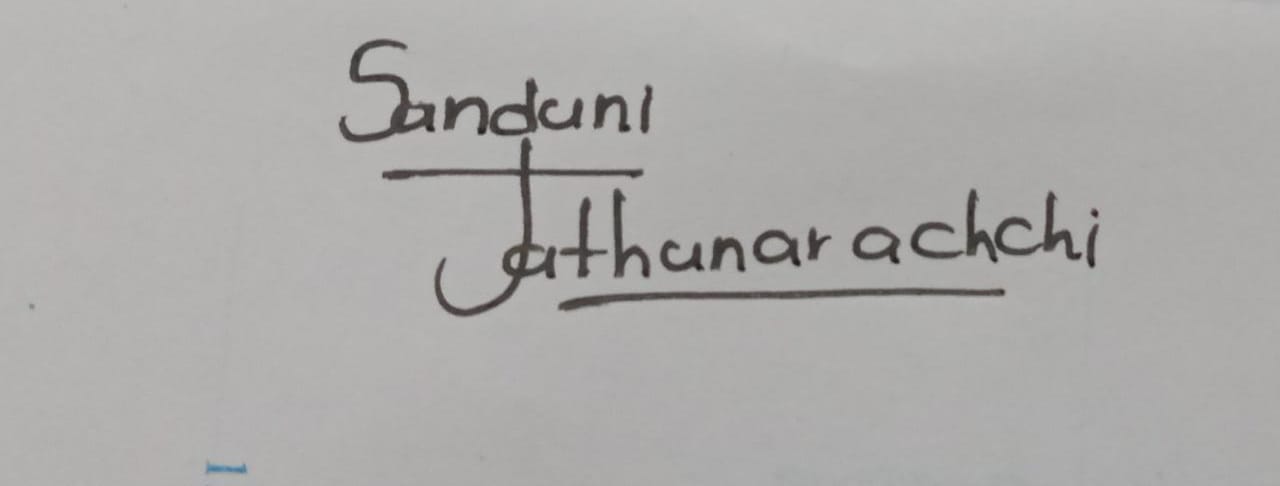 Sanduni
Jathunarachchi